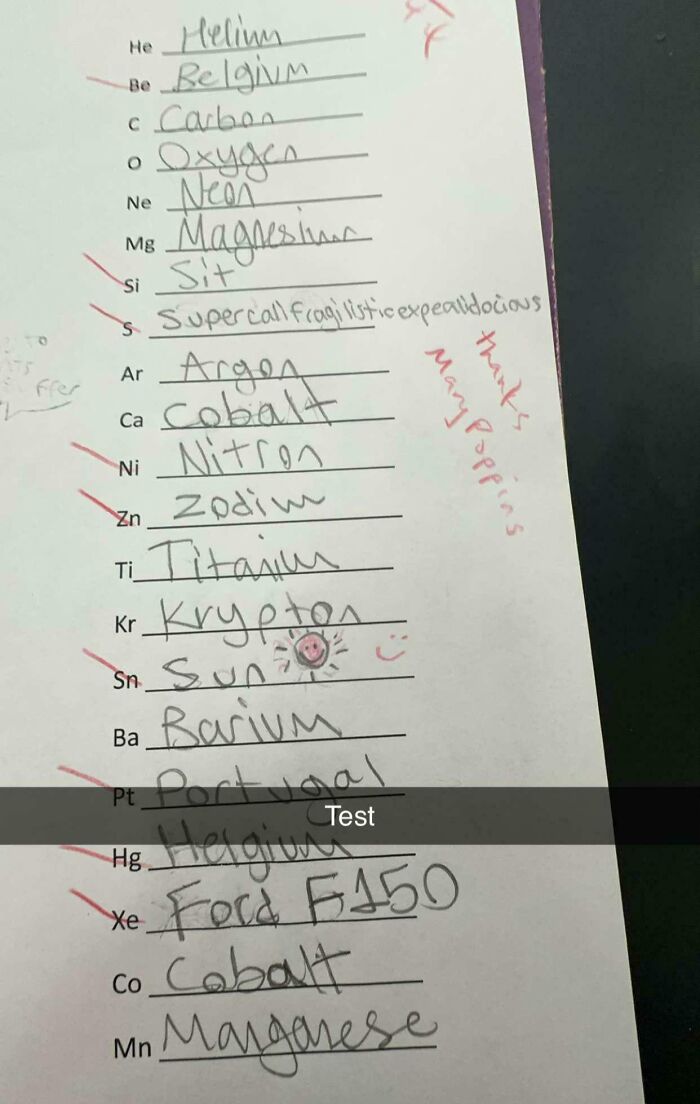 He Helium
Be Belgium
C Carbon
O Oxygen
Ne Neon
Mg Magnesium
Si Sit
S Supercalifragilisticexpealidocious
thanks
Mary Poppins
Ar Argon
Ca Cobalt
Ni Nitron
Zn Zodium
Ti Titanium
Kr Krypton
Sn Sun
Ba Barium
Pt Portugal
Test
Hg Helgium
Xe Ford F150
Co Cobalt
Mn Manganese